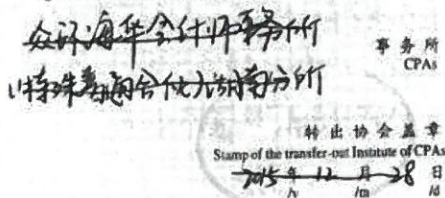 众环海华会计师事务所
(特殊普通合伙)湖南分所
事务所
CPAs
转出协会盖章
Stamp of the transfer-out Institute of CPAs
2015 年 12 月 28 日
/y /m /d